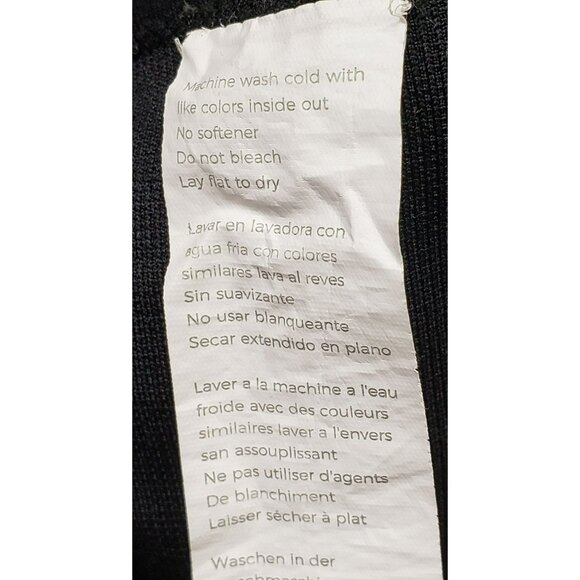 Machine wash cold with
like colors inside out
No softener
Do not bleach
Lay flat to dry
Lavar en lavadora con
agua fria con colores
similares lava al reves
Sin suavizante
No usar blanqueante
Secar extendido en plano
Laver a la machine a l'eau
froide avec des couleurs
similaires laver a l'envers
san assouplissant
Ne pas utiliser d'agents
De blanchiment
Laisser sécher à plat
Waschen in der